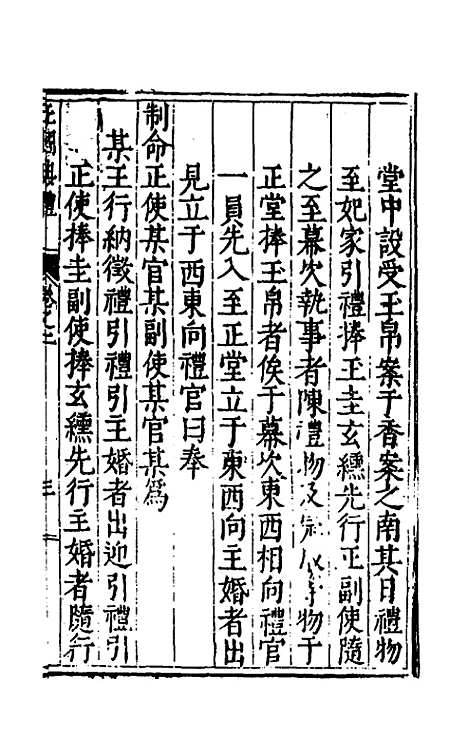 堂中設受玉帛案于香案之南其日禮物
至妃家引禮捧玉圭玄纁先行正副使隨
之至幕次執事者陳禮物及物于
正堂捧玉帛者俟于幕次東西相向禮官
一員先入至正堂立于東西向主婚者出
見立于西東向禮官曰奉
制命正使某官某副使某官某為
某王行納徵禮引禮引主婚者出迎引禮引
正使捧圭副使捧玄纁先行主婚者隨行
王國典禮 卷之二 三